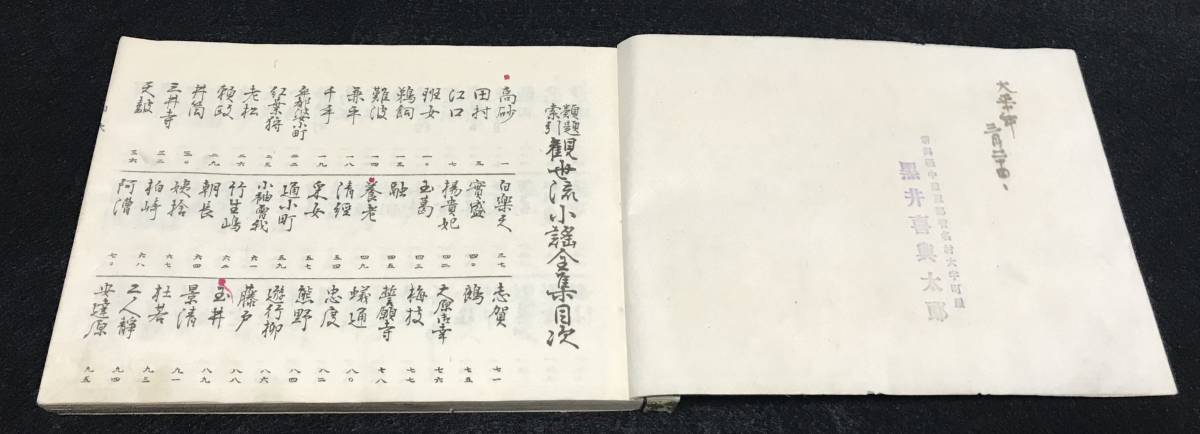 大正十年
三月二十四、
黒井喜與太郎
類題
索引
観世流小謡全集目次
高砂 一
田村 五
江口 七
班女 一〇
鵜飼 一三
難波 一五
兼平 一八
千手 一九
卒都婆小町 二二
紅葉狩 二五
老松 二六
頼政 二九
井筒 三〇
三井寺 三三
天鼓 三六
白楽天 三七
実盛 四〇
楊貴妃 四二
玉葛 四三
融 四五
養老 四九
清経 五四
采女 五七
通小町 五九
小袖曽我 六一
竹生嶋 六二
朝長 六四
姨捨 六七
柏崎 六八
阿漕 七〇
志賀 七一
鵺 七五
大原御幸 七六
梅枝 七七
誓願寺 七八
蟻通 八〇
忠度 八二
熊野 八四
遊行柳 八六
藤戸 八八
玉井 八九
景清 九一
杜若 九三
二人静 九四
安達原 九五